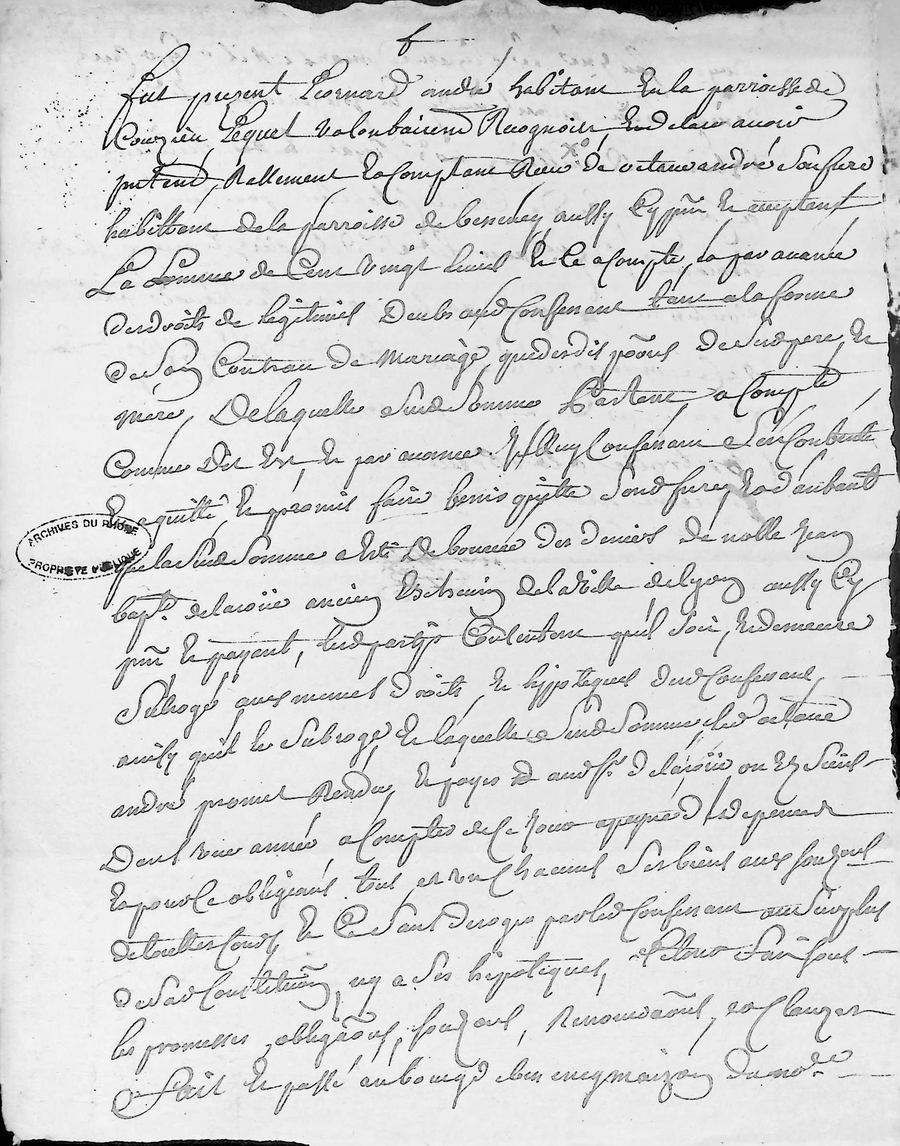 fut present Leonard andré habitant En la parroisse de
Courzieu, Lequel volontairemt Recognoist, End claré avoir
Reellement Et Comptant Receu de octave andré Son frere
habittant de la parroisse de bessenay aussy Cy pnt Et acceptant
La Somme de Cent vingt Livres Et Ce a Compte, Et par avance
des droits de legitimes Deubs audt Confessant tant a la forme
de Son Contrat de Mariage, que desdis pñons de Sesd pere, Et
mere, De laquelle Susd Somme Partant, a Compte
Comme dit Est, Et par avance Jcelluy Confessant Sen Contente
En quitte Et promis faire tenir quitte Sond frere, Et d'autant
que la Susd Somme a Esté Deboursée des deniers de noble Jean
bapte. delaroüe ancien Echevin de la Ville de Lyon aussy Cy
pnt Et payant, Lesd partys Consentent qu'il Soit, Et demeure
Subrogé, aux mesmes droits, Et hypoteques dud Confessant,
ainsy qu'il le Subroge, Et laquelle Susd Somme, led octave
andré promet Rendre, Et payer audt Sr. delaroüe ou Es Siens
Dans une année, a Compter de Ce Jour a peyne d depens
Et pour Ce obligeant tous, et un Chacuns Ses biens aux
de touttes Cours, Et Ce Sans deroger par led Confessant au Surplus
de Sad Constitution, ny a Ses hipoteques, Et Tous Ainsy Sous
les promesses, obligãons, Renonciãons, et Clauzes
Fait Et passé au bourg de bessenay maizon du no.re
ARCHIVES DU RHÔNE
PROPRIÉTÉ PUBLIQUE